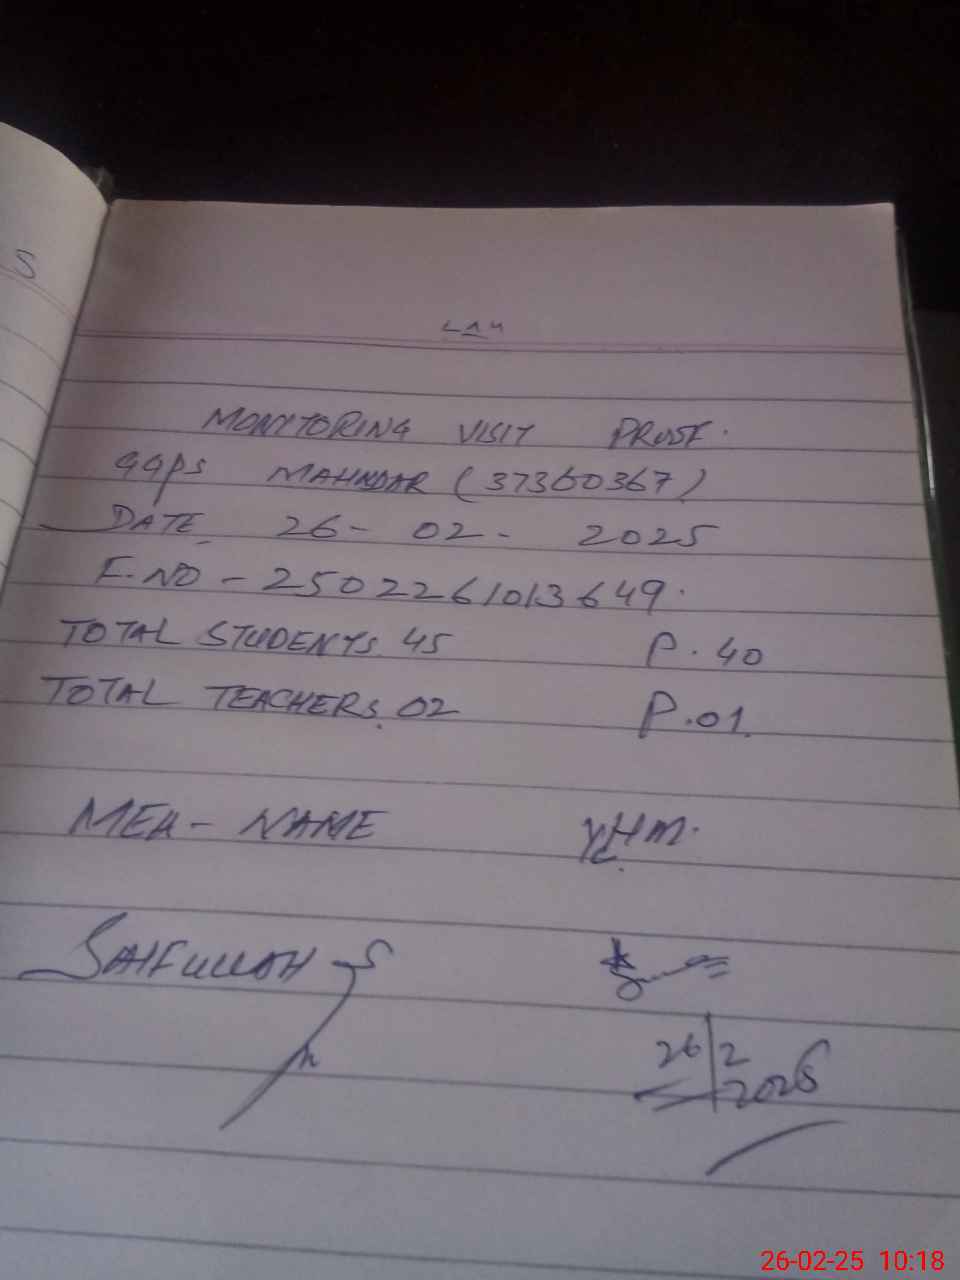 S
MONITORING VISIT PROOF.
GGPS MAHNDAR (37360367)
DATE 26- 02- 2025
F.NO - 2502261013649.
TOTAL STUDENTS. 45 P. 40
TOTAL TEACHERS. 02 P. 01.
MEA- NAME HM.
SAIFULLAH
26/2
2025
26-02-25 10:18